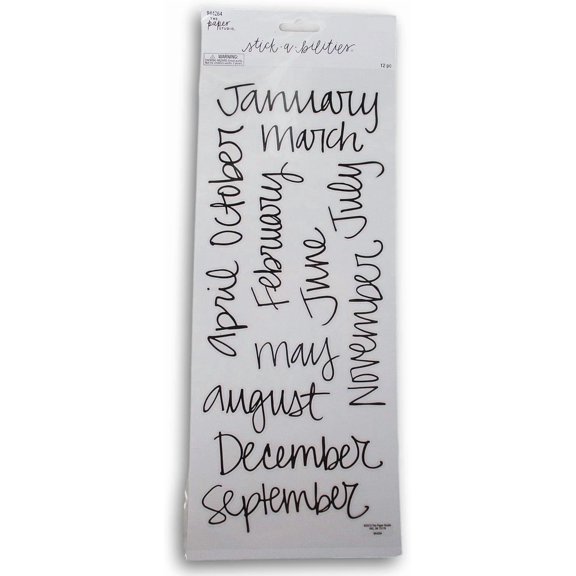 THE
paper
STUDIO
stick·a·bilities
WARNING:
12 pc
January
March
October
February
July
April
June
November
may
august
December
September